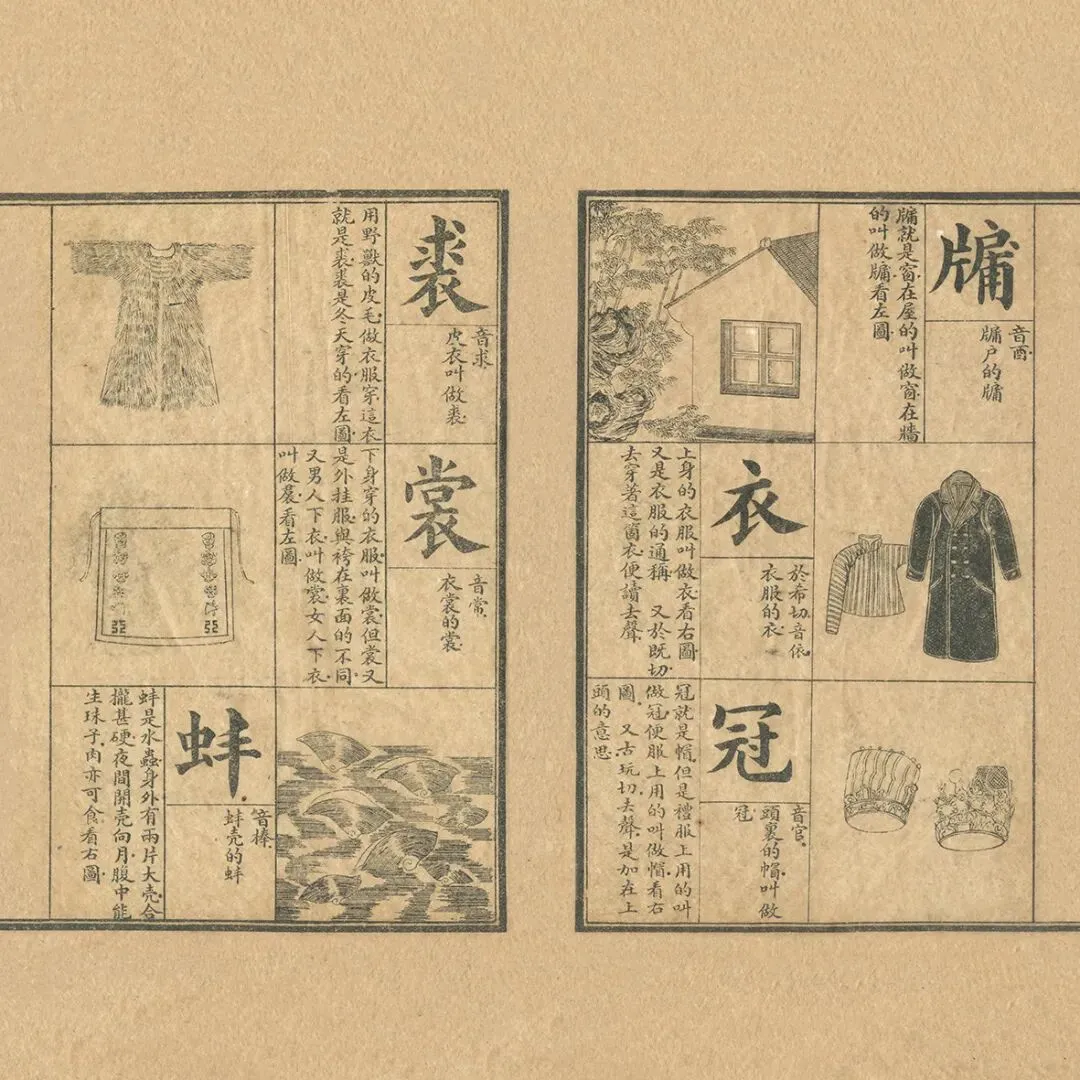 牗
音酉
牗户的牗
牗就是窗在屋的叫做窗在牆
的叫做牗看左圖
衣
於希切音依
衣服的衣
上身的衣服叫做衣看右圖
又是衣服的通稱 又於既切
去穿著這箇衣便讀去聲
冠
音官
頭裏的帽叫做
冠
冠就是帽但是禮服上用的叫
做冠便服上用的叫做帽看右
圖 又古玩切去聲是加在上
頭的意思
裘
音求
皮衣叫做裘
用野獸的皮毛做衣服穿這衣
就是裘裘是冬天穿的看左圖
裳
音常
衣裳的裳
下身穿的衣服叫做裳但裳又
是外挂服與袴在裏面的不同
又男人下衣叫做裳女人下衣
叫做裠看左圖
蚌
音棒
蚌壳的蚌
蚌是水蟲身外有兩片大壳合
攏甚硬夜間開壳向月腹中能
生珠子肉亦可食看右圖